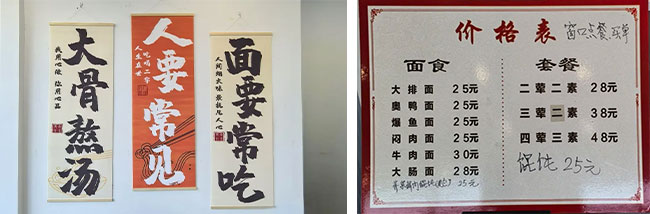 大骨熬汤
我用心做 您用心品
人要常见
吃喝二字
人生在世
面要常吃
人间烟火味 最抚凡人心
价格表 窗口点餐买单
面食
大排面 25元
奥鸭面 25元
爆鱼面 25元
焖肉面 25元
牛肉面 30元
大肠面 28元
25元
套餐
二荤二素 28元
三荤二素 38元
四荤三素 48元
馄饨25元